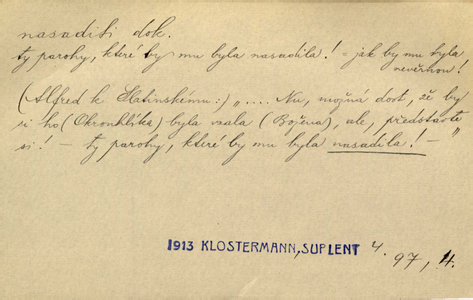 nasaditi dok.
ty parohy, které by mu byla nasadila! = jak by mu byla
nevěrnou!
(Alfred k Slatinskému:) „.... Nu, možná dost, že by
si ho (Okrouhlíka) byla vzala (Božena), ale, představte
si! — ty parohy, které by mu byla nasadila! — "
1913 KLOSTERMANN, SUPLENT 4. 97, 4.